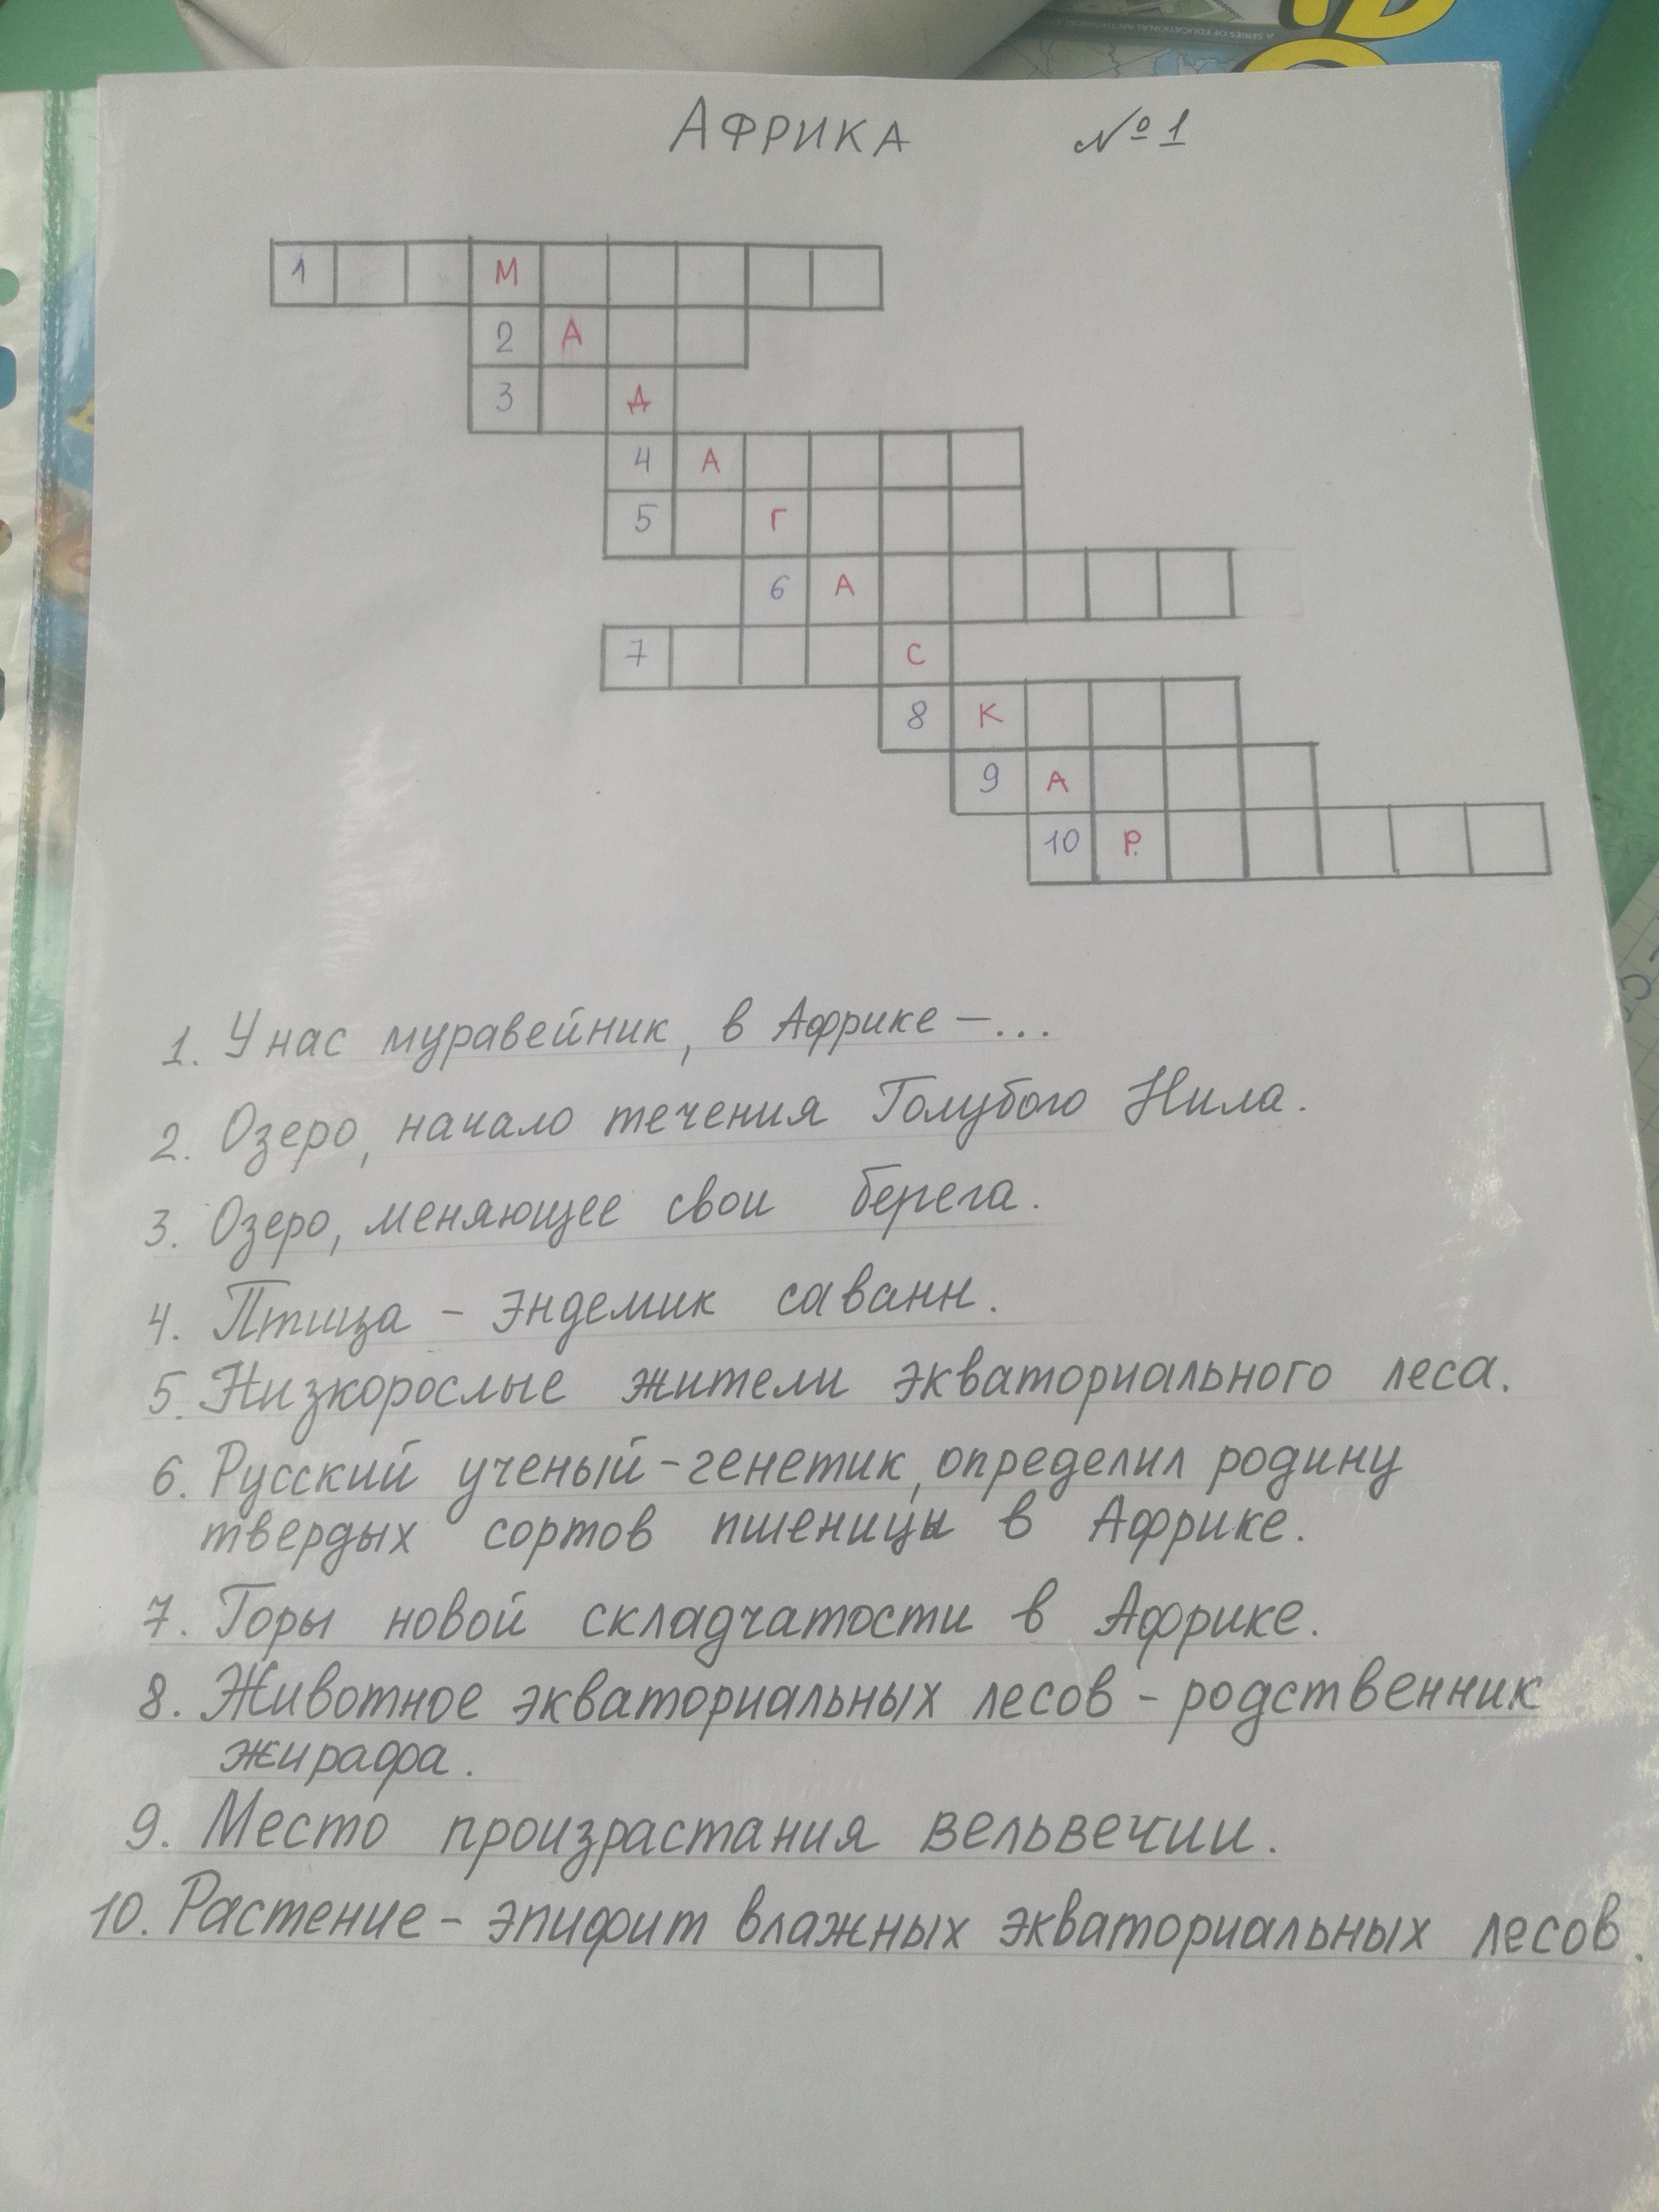 A SERIES OF EDUCATIONAL METHODICAL
АФРИКА №1
1 М
2 А
3 Д
4 А
5 Г
6 А
7 С
8 К
9 А
10 Р
1. У нас муравейник, в Африке –...
2. Озеро, начало течения Голубого Нила.
3. Озеро, меняющее свои берега.
4. Птица – эндемик саванн.
5. Низкорослые жители экваториального леса.
6. Русский ученый-генетик, определил родину
твердых сортов пшеницы в Африке.
7. Горы новой складчатости в Африке.
8. Животное экваториальных лесов – родственник
жирафа.
9. Место произрастания вельвечии.
10. Растение – эпифит влажных экваториальных лесов.